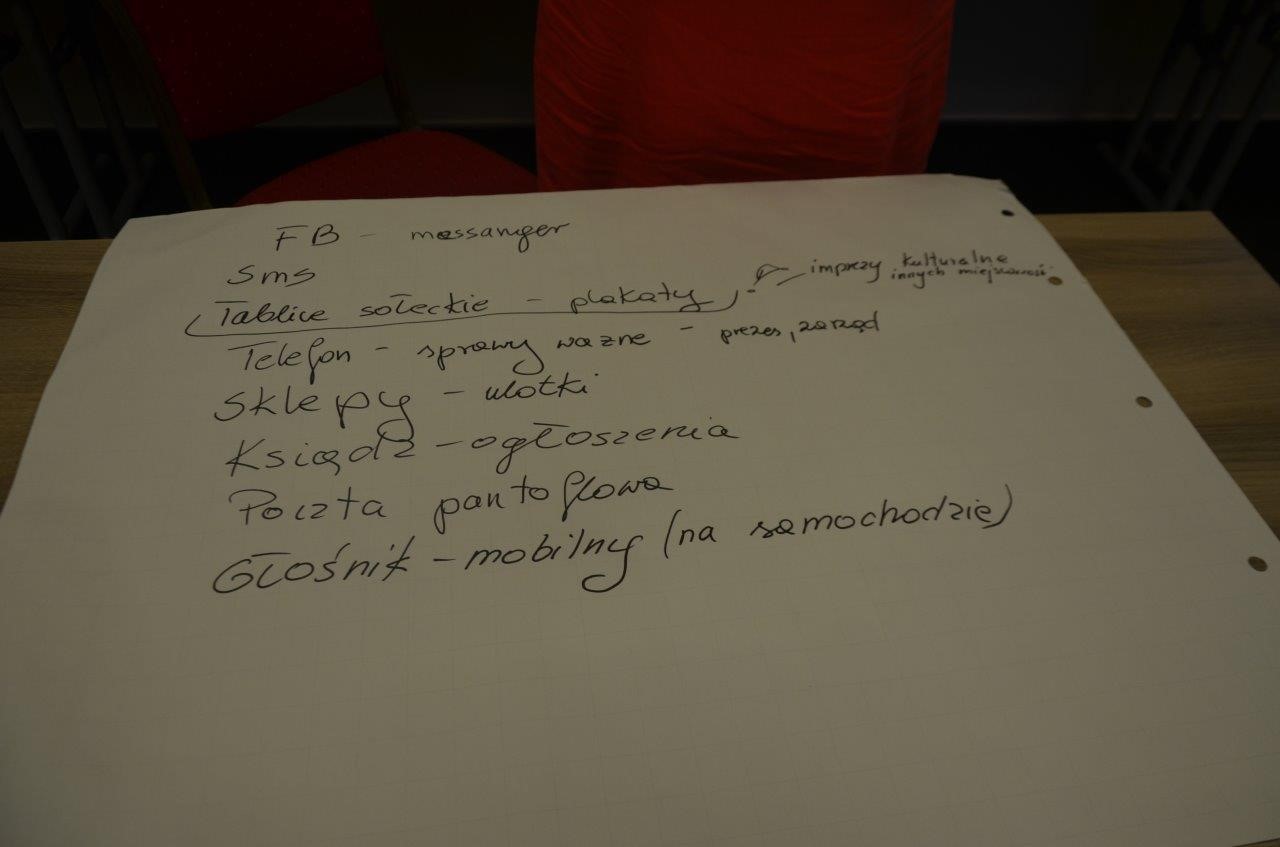 FB - messanger
Sms
Tablice sołeckie - plakaty
imprezy kulturalne
innych miejscowości
Telefon - sprawy ważne - prezes, zarząd
Sklepy - ulotki
Ksiądz - ogłoszenia
Poczta pantoflowa
Głośnik - mobilny (na samochodzie)